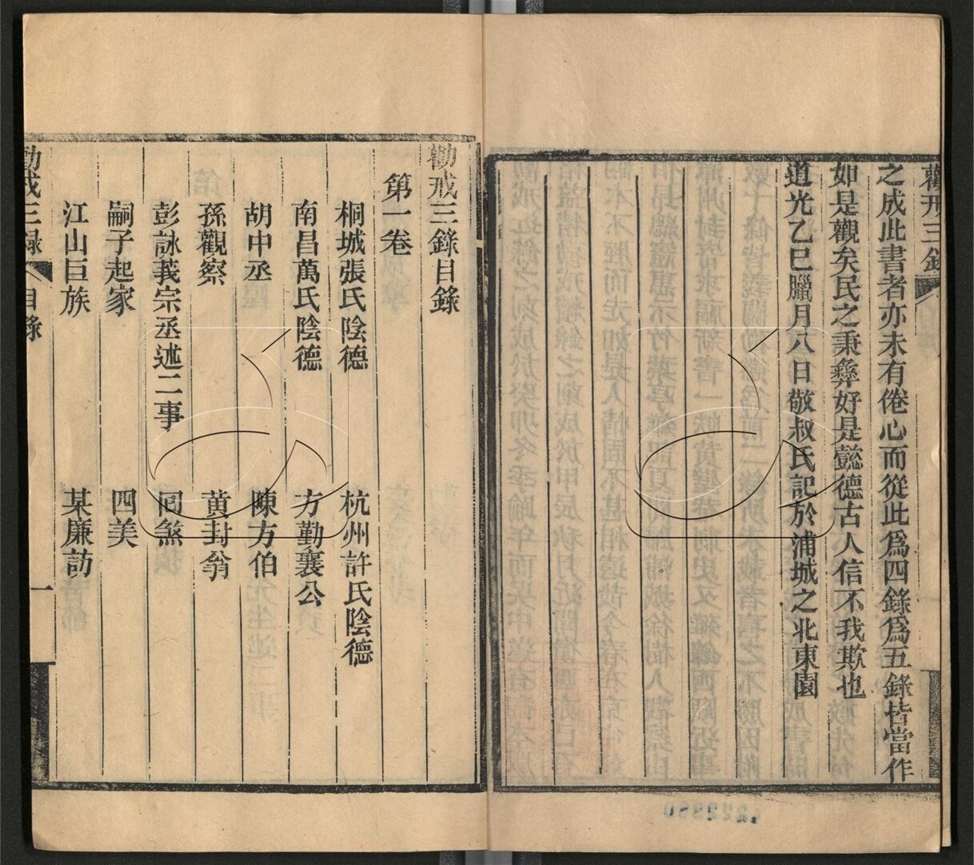 勸戒三錄
之成此書者亦未有倦心而從此爲四錄爲五錄皆當作
如是觀矣民之秉彝好是懿德古人信不我欺也
道光乙巳臘月八日敬叔氏記於浦城之北東園
勸戒三錄目錄
第一卷
桐城張氏陰德 杭州許氏陰德
南昌萬氏陰德 方勤襄公
胡中丞 陳方伯
孫觀察 黄封翁
彭詠莪宗丞述二事 同煞
嗣子起家 四美
江山巨族 某廉訪
勸戒三錄 目錄 一